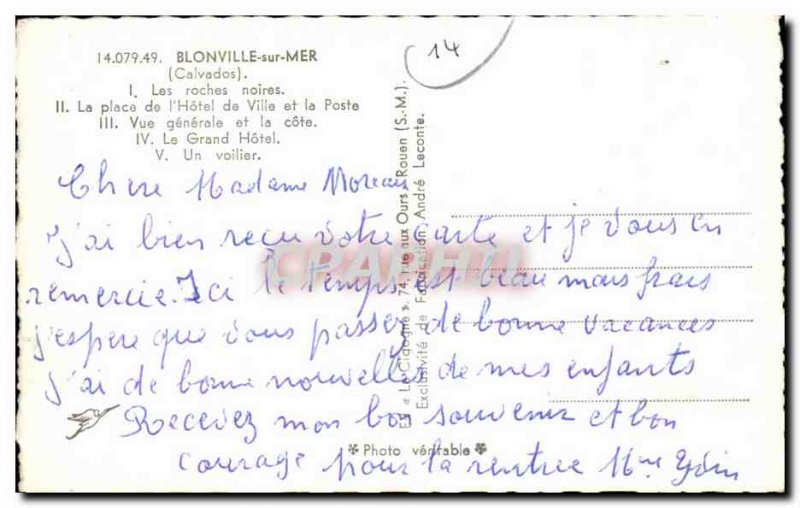 14.079.49. BLONVILLE-sur-MER
(Calvados).
I. Les roches noires.
II. La place de l'Hôtel de Ville et la Poste
III. Vue générale et la côte.
IV. Le Grand Hôtel.
V. Un voilier.
14
Chere Madame Moreau
j'ai bien reçu votre carte et je vous en
remercie. Ici le temps est beau mais frais
j'espere que vous passez de bonne vacances
j'ai de bonne nouvelles de mes enfants
Recevez mon bon souvenir et bon
courage pour la rentree Mme
« La Cigogne » 74, rue aux Ours - Rouen (S.-M.)
Exclusivité de Fabrication, André Leconte.
Photo véritable
CPARAMA